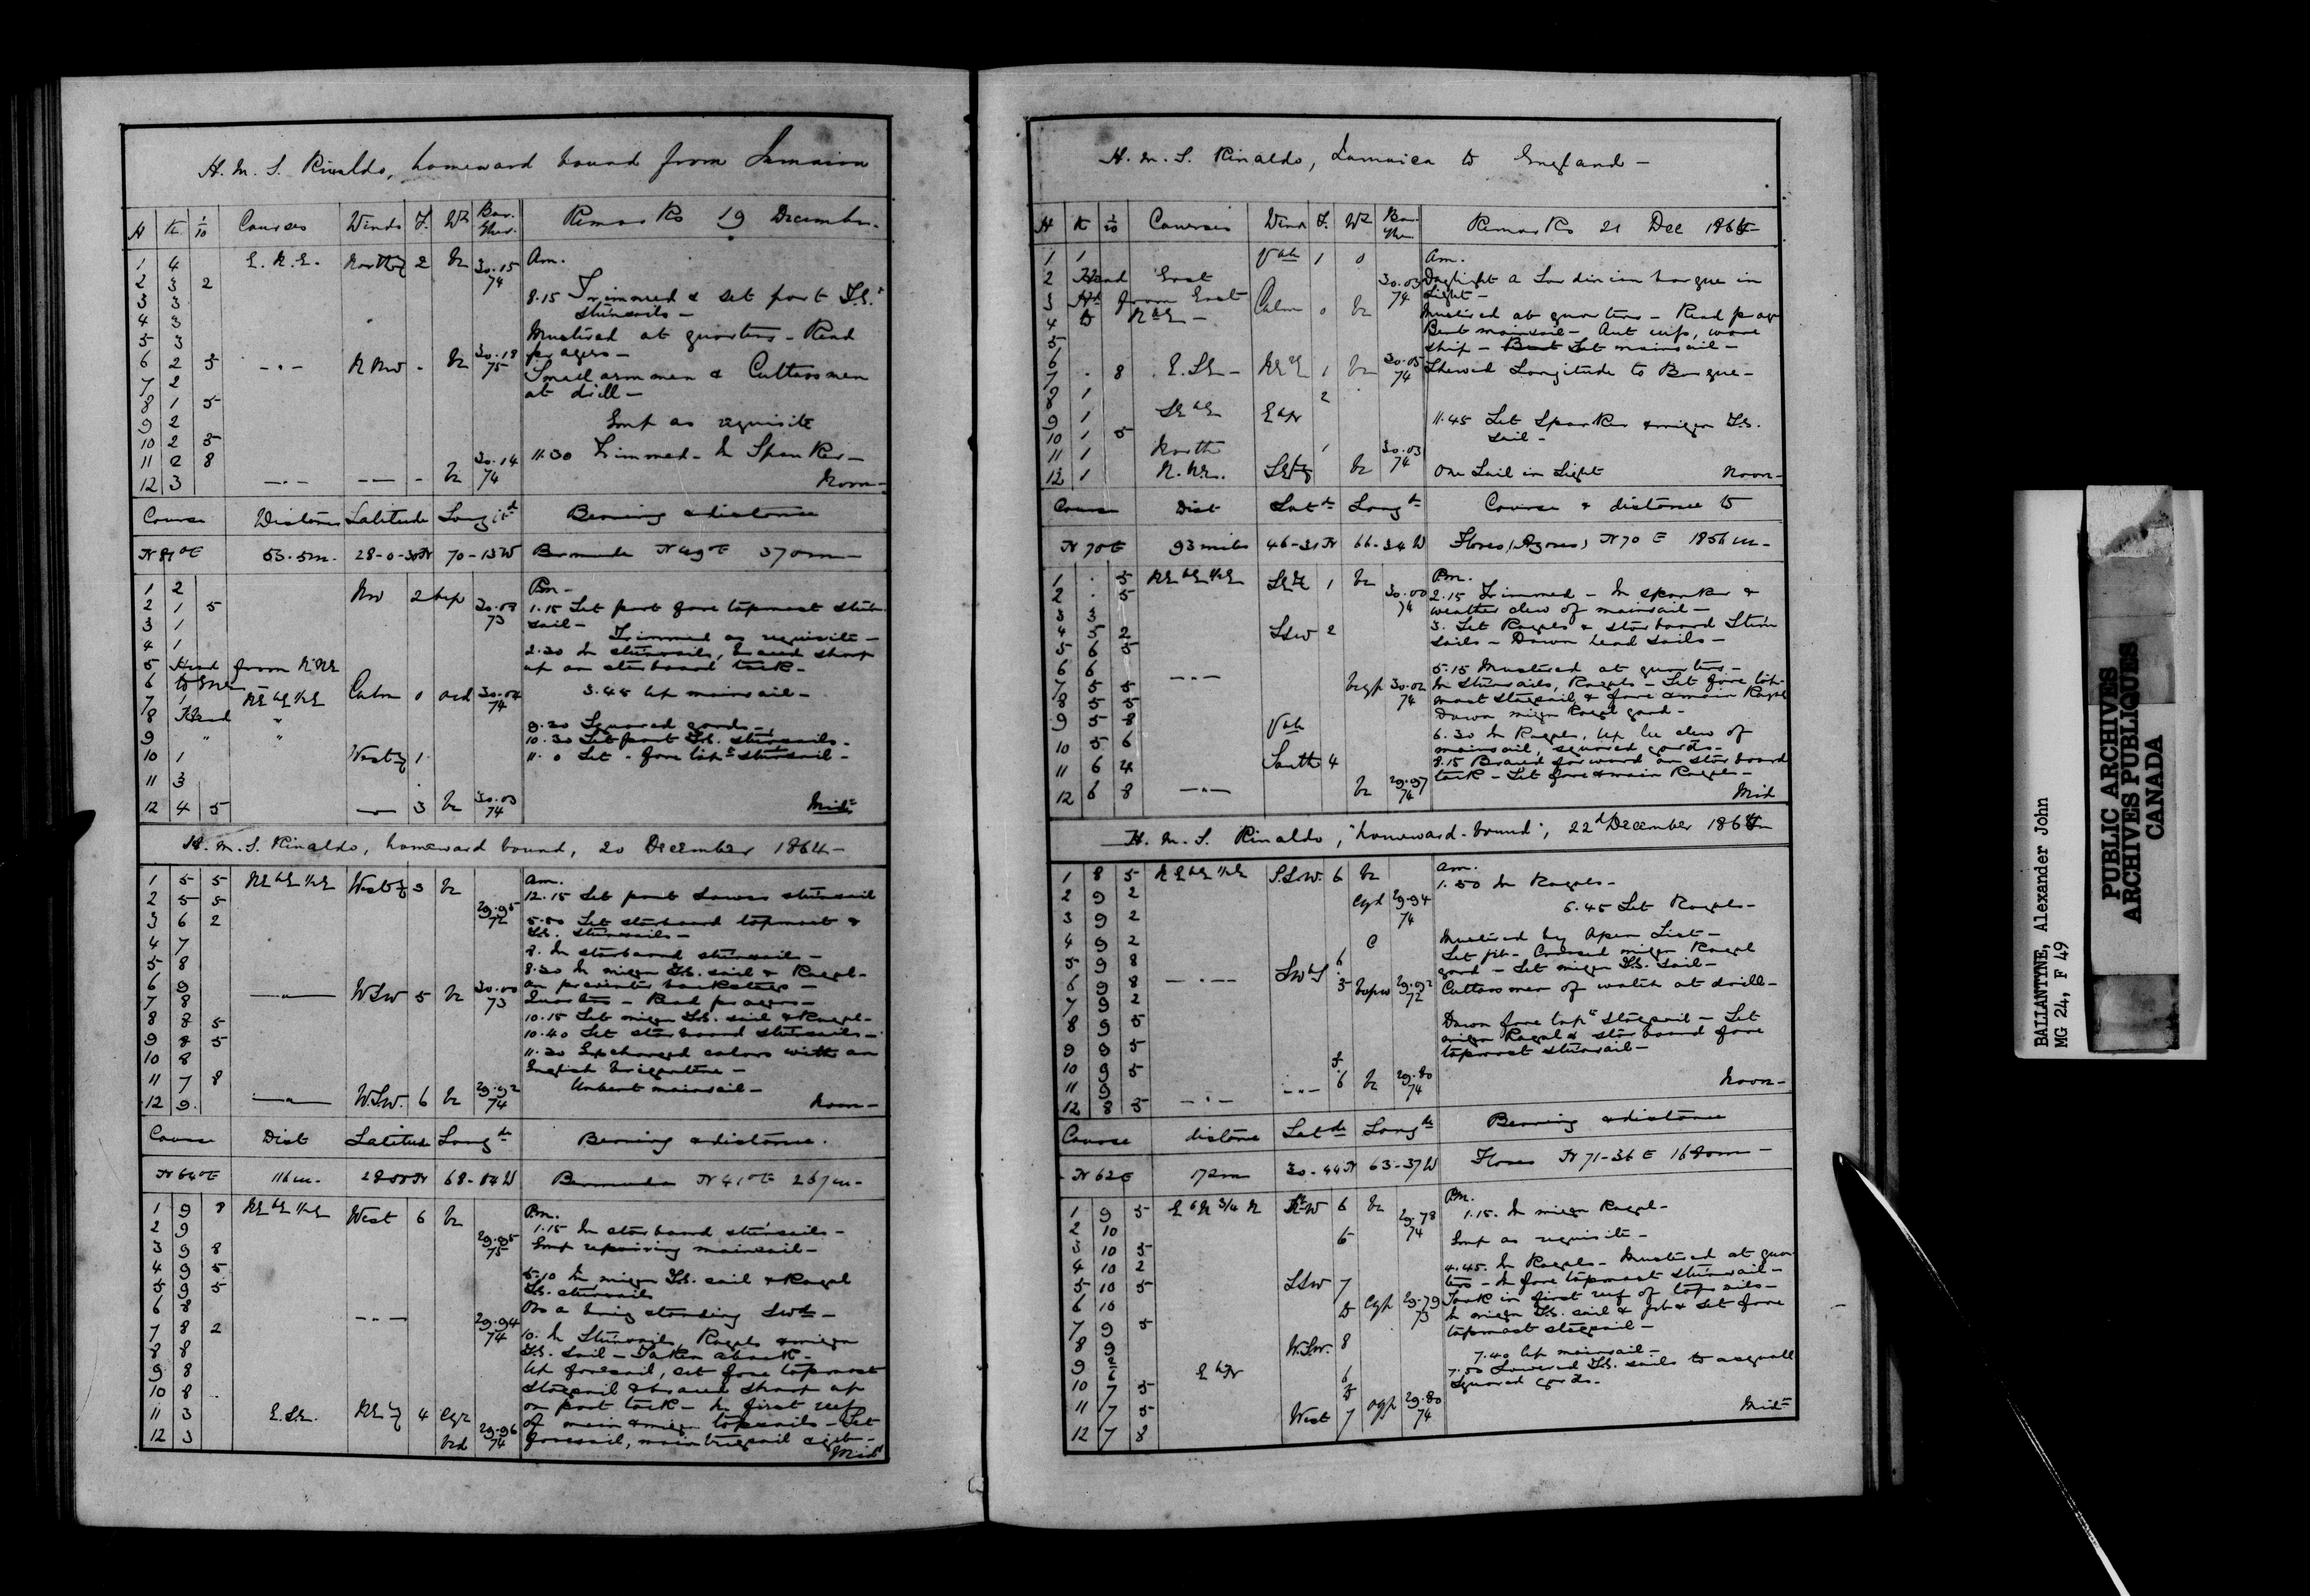 H. M. S. Rinaldo, homeward bound from Jamaica
H K 1/10 Courses Winds F. Wr Bar. Ther. Remarks 19 December.
1 4 E.N.E. North'y 2 bc 30.15 74 Am.
2 3 2
3 3 8.15 Trimmed & set port T.G. stunsails –
4 3
5 3 Mustered at quarters – Read prayers –
6 2 5 – " – N NW - bc 30.18 75
7 2 Small arm men & Cutlass men at drill –
8 1 5
9 2 Emp as requisite
10 2 5
11 2 8 11.30 Trimmed – In Spanker –
12 3 – " – – – - bc 30.14 74 Noon –
Course Distance Latitude Longitd Bearing & distance
N 81° E 53.5 m. 28-0-30 N 70-13 W Bermuda N 49° E 370 m –
1 2 NW 2 bcp Pm –
2 1 5 30.03 73 1.15 Set port fore topmost stunsail –
3 1 Trimmed as requisite –
4 1 2.30 In stunsails, braced sharp up on starboard tack –
5 Head from NNE
6 to ENE 3.45 Up mainsail –
7 1 NE bE ½ E Calm 0 ocd 30.04 74
8 Head " 9.30 Squared yards –
9 " " 10.30 Set port T.G. stunsails –
10 1 West'y 1 11.0 Set . fore topt stunsail –
11 3
12 4 5 — 3 bc 30.03 74 Midt
H. M. S. Rinaldo, homeward bound, 20 December 1864 –
1 5 5 NE bE ½ E West'y 3 bc Am.
2 5 5 29.95 72 12.15 Set port Lower stunsail
3 6 2 5.50 Set starboard topmost & T.G. stunsails –
4 7 8. In starboard stunsails –
5 8 8.30 In mizen T.G. sail & Royal –
6 9 — " — WSW 5 bc 30.00 73 on preventer backstays –
7 8 Quarters – Read prayers –
8 8 5 10.15 Set mizen T.G. sail & Royal –
9 8 5 10.40 Set starboard stunsails –
10 8 11.30 Exchanged colors with an English brigantine –
11 7 8 Unbent mainsail –
12 9 — " — W.S.W. 6 bc 29.92 74 Noon –
Course Dist Latitude Longde Bearing & distance.
N 64° E 116 m. 68-04 W Bermuda N 41° E 267 m –
1 9 8 NE bE ½ E West 6 bc Pm.
2 9 1.15 In starboard stunsails –
3 9 8 29.95 75 Emp repairing mainsail –
4 9 5
5 9 5 5.10 In mizen T.G. sail & Royal T.G. stunsails
6 8 Obs a brig standing Swd –
7 8 2 – – – 29.94 74 10. In Stunsails, Royals & mizen
8 8 T.G. sail – Taken aback –
9 8 Up foresail, set fore topmost
10 8 staysail & braced sharp up
11 3 E.SE. NE'y 4 on port tack – In first reef
12 3 29.96 74 of main & mizen topsails – Set foresail, main trysail & jib –
Midt
H. M. S. Rinaldo, Jamaica to England –
H K 1/10 Courses Wind F. Wr Bar Ther Remarks 21 Dec 1864
1 1 Vble 1 0 Am.
2 Head East 30.03 74 Daylight a Sardinian barque in sight –
3 Hd from East Calm 0 bc
4 to NbE – Mustered at quarters – Read pray
5 Bent mainsail – Out reefs, wore ship – Bent Set mainsail –
6 30.05 74
7 . 8 E.SE – 1 bc Shewed Longitude to Barque –
8 1 2
9 1 SEbE EbN 11.45 Set Spanker & mizen T.G. sail –
10 1 5
11 1 North 1 30.03 74
12 1 N.NE. SE'y bc One Sail in Sight Noon –
Course Dist Latde Longde Course & distance to
N 70 E 93 miles 66-34 W Flores (Azores) N 70 E 1856 m –
1 . 5 NE bE ½ E 1 bc Pm.
2 . 5 30.00 74 2.15 Trimmed – In spanker & weather clew of mainsail –
3 3
4 5 2 SSW 2 3. Set Royals & starboard Stunsails – Down head sails –
5 6 5
6 6 5.15 Mustered at quarters –
7 5 5 – " – bcgp 30.02 74 In stunsails, Royals – Set fore topmost staysail & fore & main Royal
8 5 5 Down mizen Royal yard –
9 5 8 Vble 6.30 In Royals, Up lee clew of mainsail, squared yards –
10 5 6
11 6 4 South 4 8.15 Braced forward on starboard tack – Set fore & main Royals –
12 6 8 – " – bc 29.97 74 Mid
H. M. S. Rinaldo, "homeward-bound", 22d December 1864
1 8 5 NE bE ½ E S.SW. 6 bc Am.
2 9 2 cgd 29.94 74 1.50 In Royals –
3 9 2 6.45 Set Royals –
4 9 2 c Mustered by Open List –
5 9 8 6 Set jib – Crossed mizen Royal yard – Set mizen T.G. sail –
6 9 8 – " – SWbS 5 29.92 72 Cutlass men of watch at drill –
7 9 2
8 9 5 Down fore topt staysail – Set mizen Royal & starboard fore topmost stunsail –
9 9 5
10 9 5
11 9 6 bc 29.80 74 Noon –
12 8 5 – " – – " –
Course distance Latde Longde Bearing & distance
N 62 E 172 m 30-44 N 63-37 W Flores N 71-36 E 1680 m –
1 9 5 E b N 3/4 N 6 bc Pm.
2 10 29.78 74 1.15. In mizen Royal –
3 10 5 6 Emp as requisite –
4 10 2 4.45. In Royals – Mustered at quarters – In fore topmost stunsail –
5 10 5 SSW 7
6 10 to cgp 29.79 73 Took in first reef of topsails –
7 9 5 In mizen T.G. sail & jib & set fore topmost staysail –
8 9 W.SW. 8 7.40 Up mainsail –
9 EbN 6 7.50 Lowered T.G. sails to a squall
10 7 5 to Squared yards –
11 7 5 West 7 ogp 29.80 74 Midt
12 7 8
BALLANTYNE, Alexander John
MG 24, F 49
PUBLIC ARCHIVES
ARCHIVES PUBLIQUES
CANADA